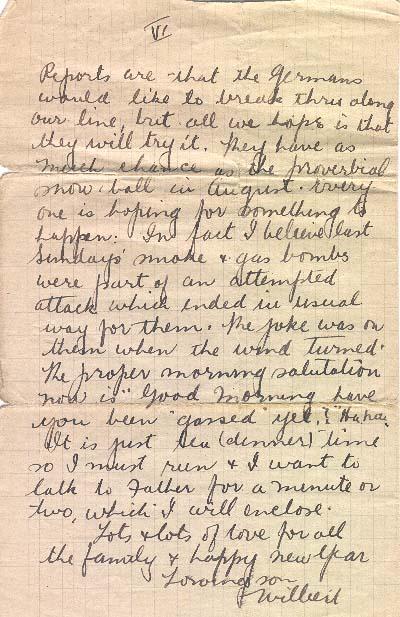 VI
Reports are that the Germans
would like to break thru along
our line, but all we hope is that
they will try it. They have as
much chance as the proverbial
snow-ball in August. Every
one is hoping for something to
happen. In fact I believe last
Sundays' smoke & gas bombs
were part of an attempted
attack which ended in usual
way for them. The joke was on
them when the wind turned.
The proper morning salutation
now is "Good Morning have
you been "gassed" yet,"? Ha ha.
It is just tea (dinner) time
so I must run & I want to
talk to Father for a minute or
two, which I will enclose.
Lots & lots of love for all
the family & happy new Year
Loving son
Wilbert